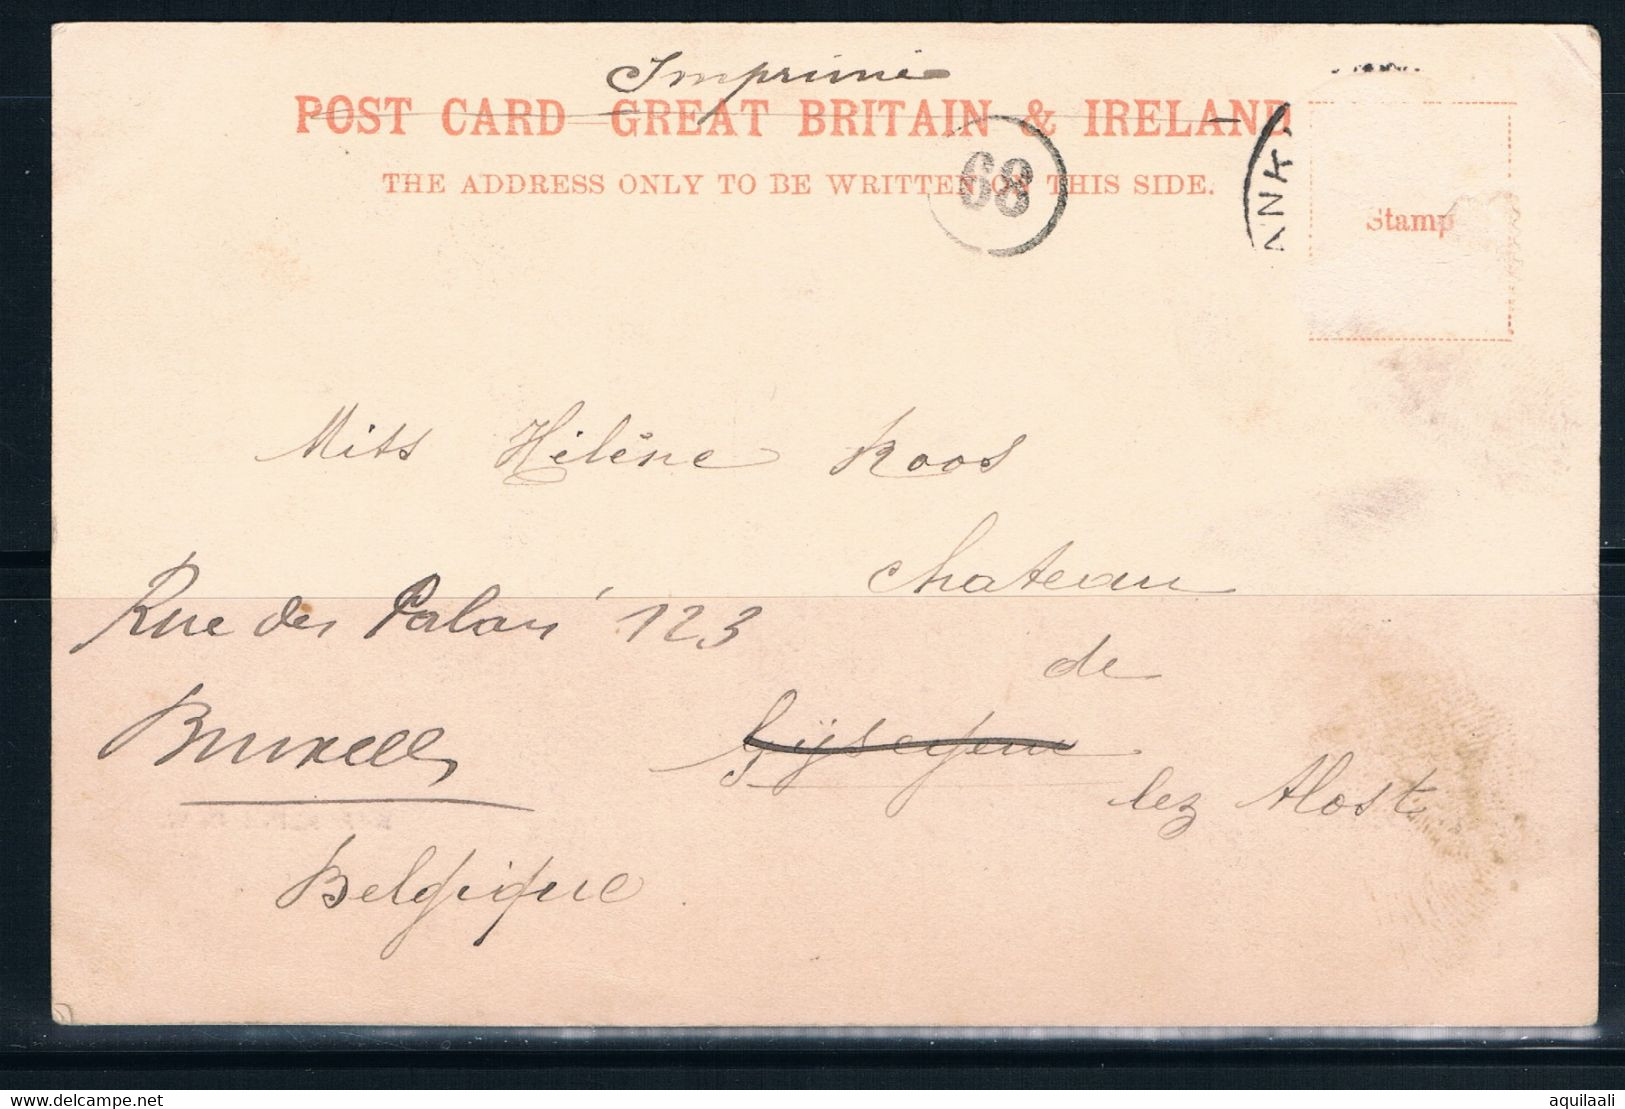 Imprimé
POST CARD GREAT BRITAIN & IRELAND
THE ADDRESS ONLY TO BE WRITTEN ON THIS SIDE.
68
ANK
Stamp
Miss Hélène Roos
Chateau
de
Gijsegem
lez Alost
Rue des Palais 123
Bruxelles
Belgique
delcampe.net
aquilaali